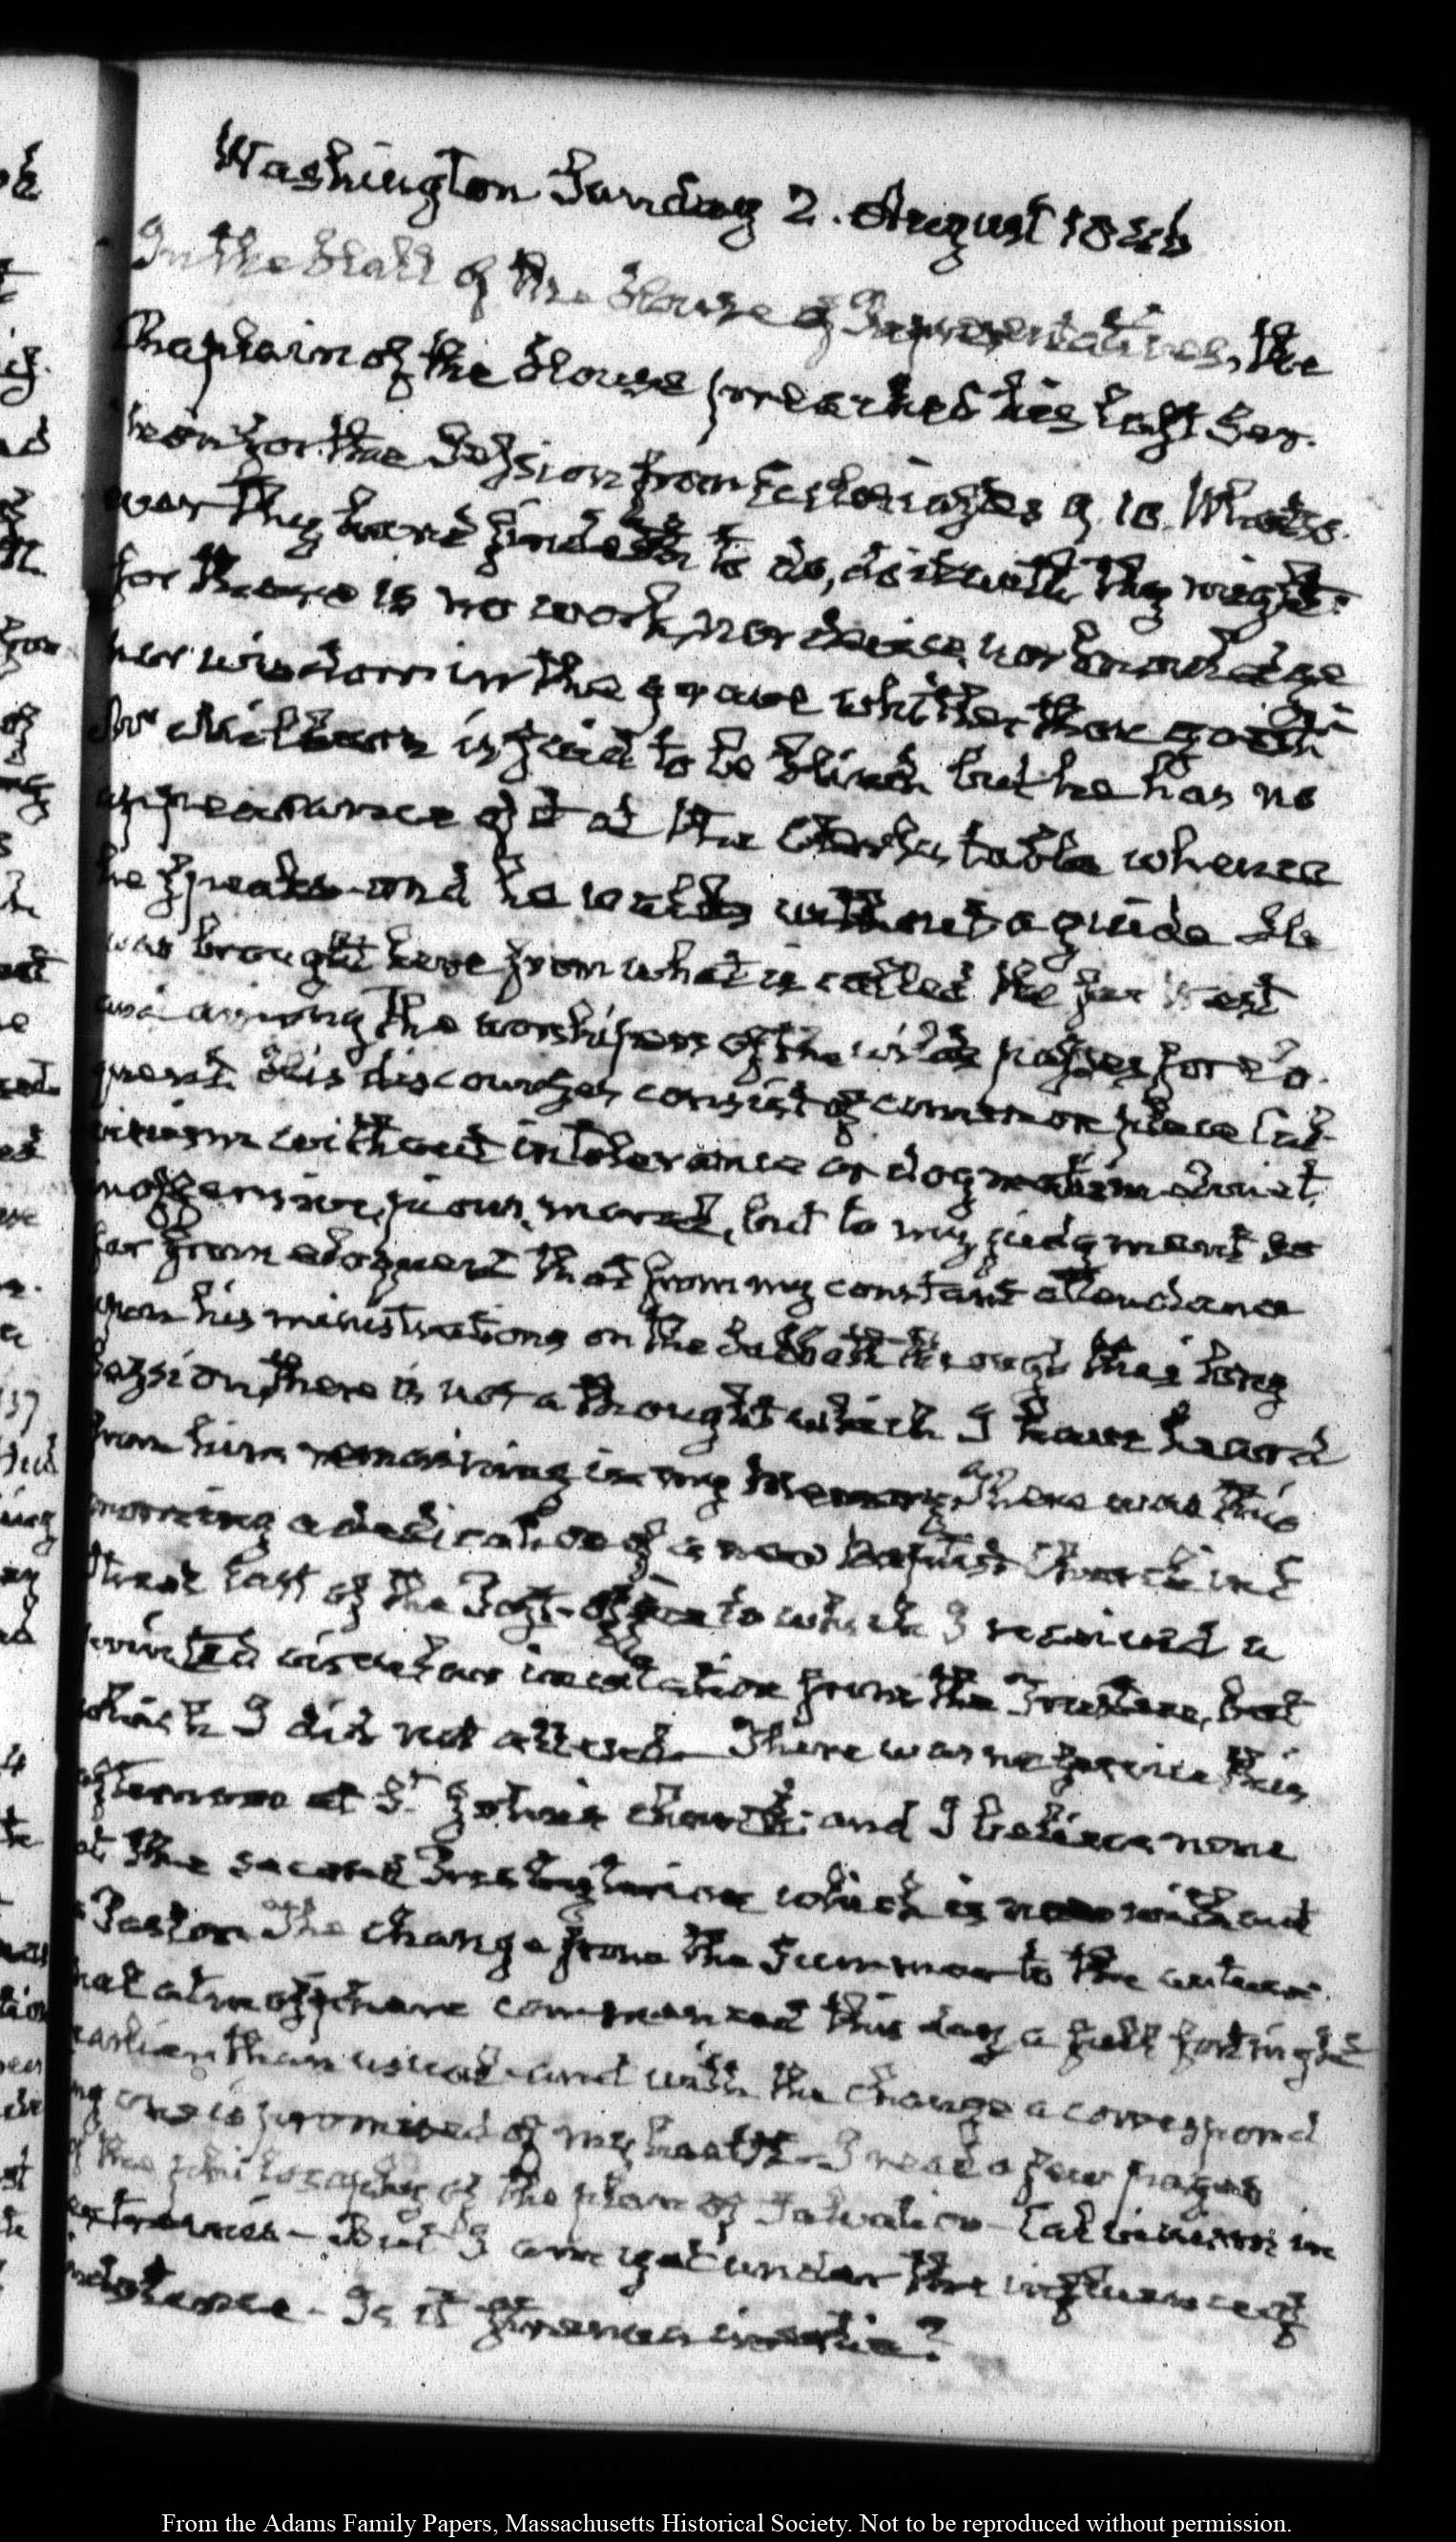 Washington Sunday 2. August 1846
In the Hall of the House of Representatives, the
Chaplain of the House preached his last Ser-
mon for the Session from Ecclesiastes 9. 10. Whatso-
ever thy hand findeth to do, do it with thy might:
for there is no work, nor device, nor knowledge
nor wisdom in the grave whither thou goest
Mr Milburn is said to be blind but he has no
appearance of it at the Clerks table whence
he speaks and he walks without a guide He
was brought here from what is called the far West
and among the worshipers of the wide passes for elo-
quent. His discourses consist of common place Cal-
vinism without intolerance or dogmatism quiet,
inoffensive, pious, moral, but to my judgment so
far from eloquent that from my constant attendance
upon his ministrations on the Sabbath through this long
Session, there is not a thought which I have heard
from him remaining in my Memory. There was this
morning a dedication of a new Baptist Church in E
Street East of the Post-Office to which I received a
printed circular invitation from the Trustees, but
which I did not attend. There was no service this
afternoon at St. John's church; and I believe none
at the second Presbyterian which is now without
a Pastor The change from the Summer to the autum-
nal atmosphere commenced this day a full fortnight
earlier than usual and with the change a correspond
ing one is promised of my health. I read a few pages
of the philosophy of the plan of Salvation - Calvinism in
extremis - But I am yet under the influence of
indolence - Is it strenua inertia?
From the Adams Family Papers, Massachusetts Historical Society. Not to be reproduced without permission.